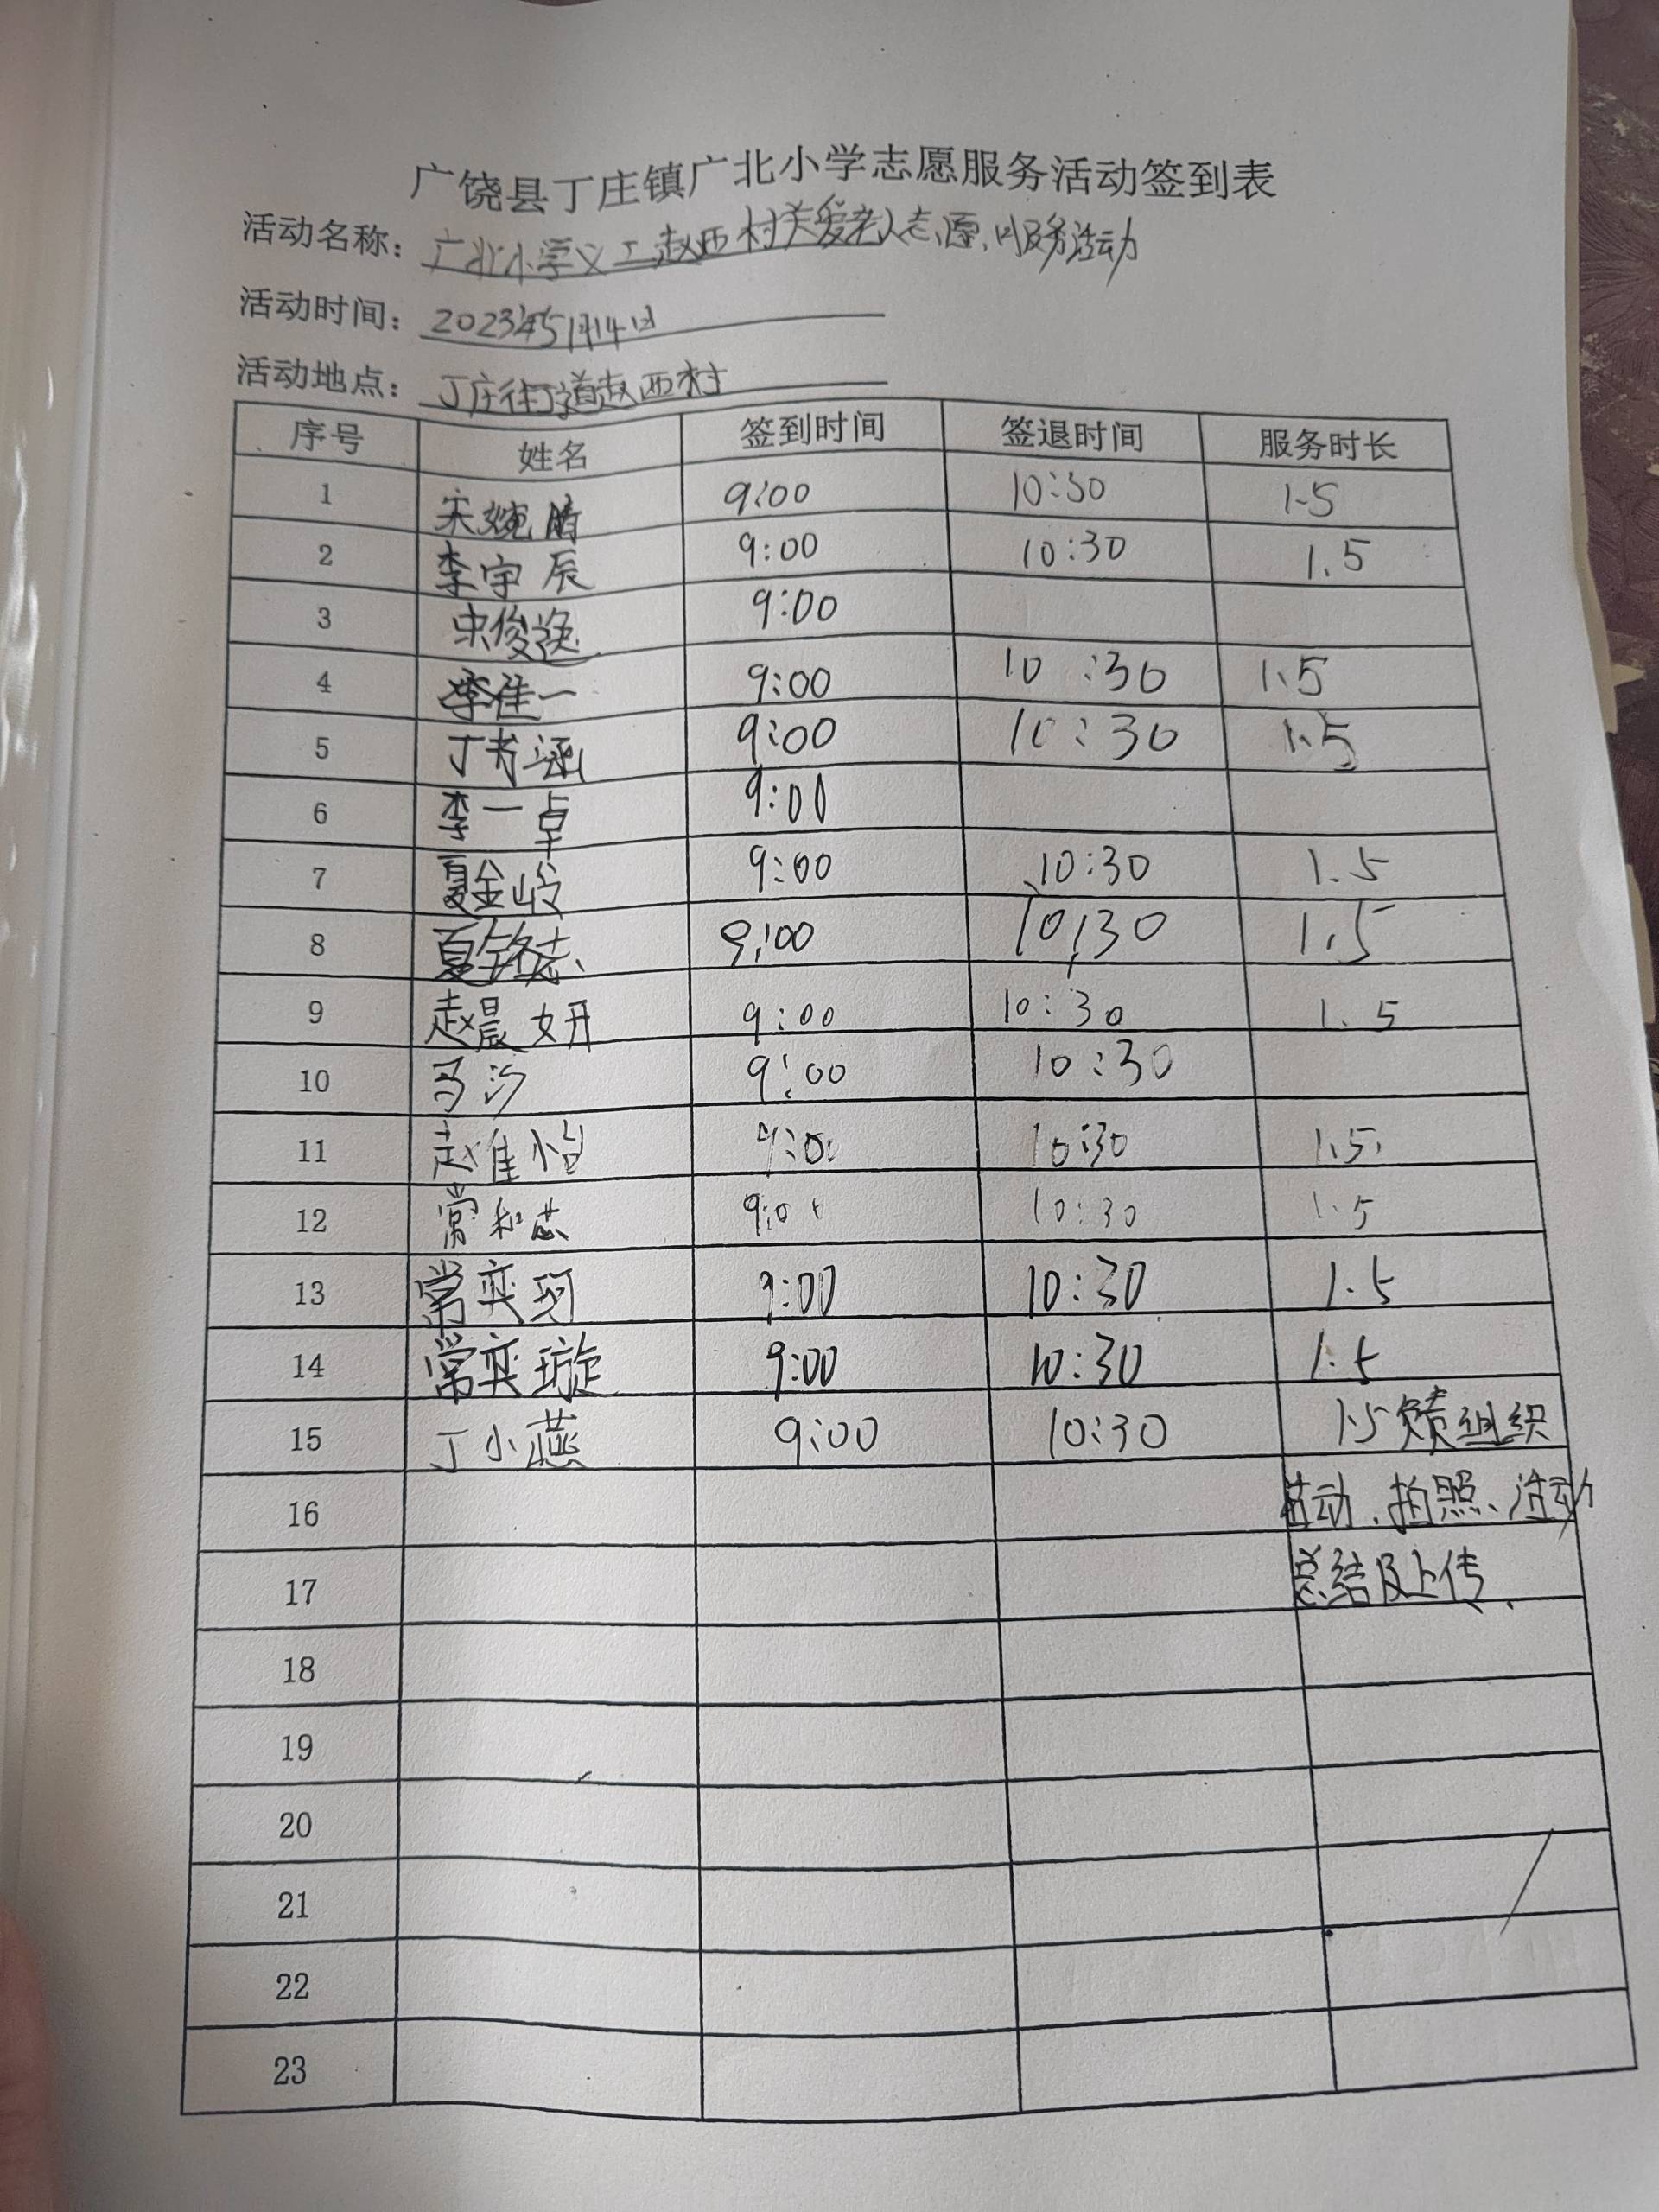 广饶县丁庄镇广北小学志愿服务活动签到表
活动名称：广北小学义工赵西村关爱老人志愿服务活动
活动时间：2023年5月14日
活动地点：丁庄街道赵西村
序号 姓名 签到时间 签退时间 服务时长
1 宋婉晴 9:00 10:30 1.5
2 李宇辰 9:00 10:30 1.5
3 宋俊逸 9:00
4 李佳一 9:00 10:30 1.5
5 丁书涵 9:00 10:30 1.5
6 李一卓 9:00
7 夏金岭 9:00 10:30 1.5
8 夏铭志 9:00 10:30 1.5
9 赵晨妍 9:00 10:30 1.5
10 马沙 9:00 10:30
11 赵佳怡 9:00 10:30 1.5
12 常和志 9:00 10:30 1.5
13 常奕珂 9:00 10:30 1.5
14 常奕璇 9:00 10:30 1.5
15 丁小燕 9:00 10:30 1.5 负责组织
16 活动、拍照、活动
17 总结及上传
18
19
20
21
22
23